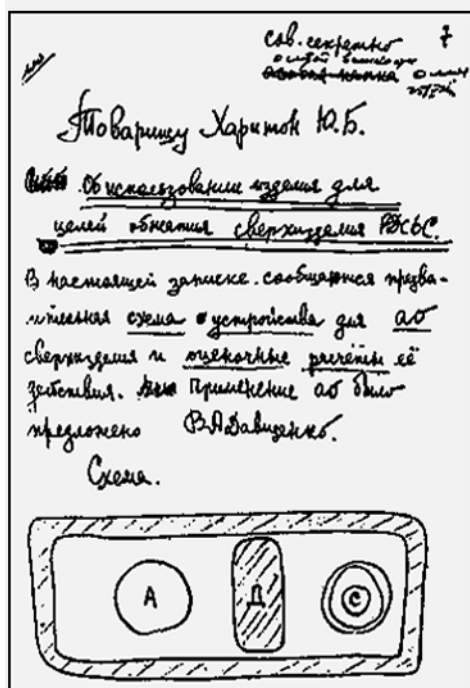 7
Сов. секретно
особой
Товарищу Харитон Ю.Б.
Об использовании изделия для
целей обжатия сверхизделия РДС6С.
В настоящей записке сообщаются предва-
рительная схема устройства для АО
сверхизделия и оценочные расчёты её
действия. Применение АО было
предложено В.А.Давиденко.
Схема.
А Д С